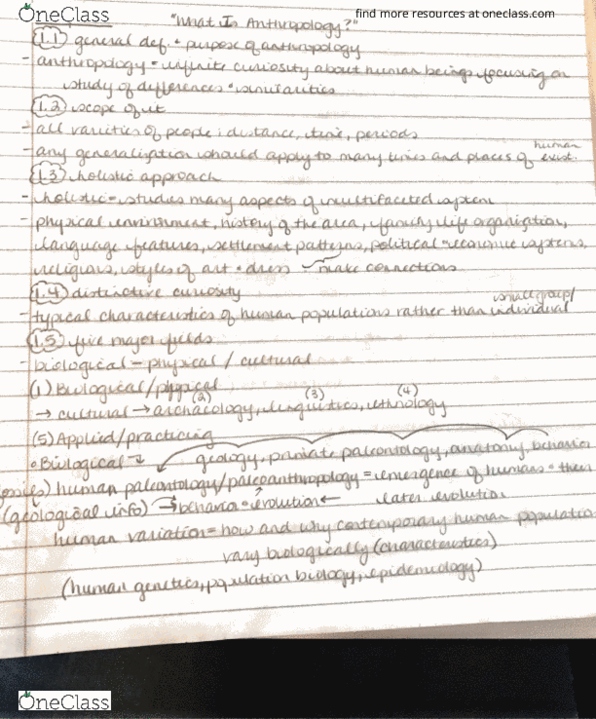 OneClass
find more resources at oneclass.com
"What Is Anthropology?"
1.1 general def. + purpose of anthropology
- anthropology = infinite curiosity about human beings, focusing on
study of differences + similarities
1.2 scope of it
- all varieties of people: distance, time, periods
- any generalization should apply to many times and places of human exist.
1.3 holistic approach
- holistic = studies many aspects of multifaceted system
- physical environment, history of the area, family life organization,
language features, settlement patterns, political + economic systems,
religions, styles of art + dress make connections
1.4 distinctive curiosity
- typical characteristics of human populations rather than small group/individual
1.5 five major fields
- biological - physical / cultural
(1) Biological/physical
→ cultural → (2) archaeology, (3) linguistics, (4) ethnology
(5) Applied/practicing
Biological geology, primate paleontology, anatomy, behavior
human paleontology/paleoanthropology = emergence of humans + their
(geological info) → behavior + evolution ← later evolution
human variation = how and why contemporary human populatio
vary biologically (characteristics)
(human genetics, population biology, epidemiology)
OneClass